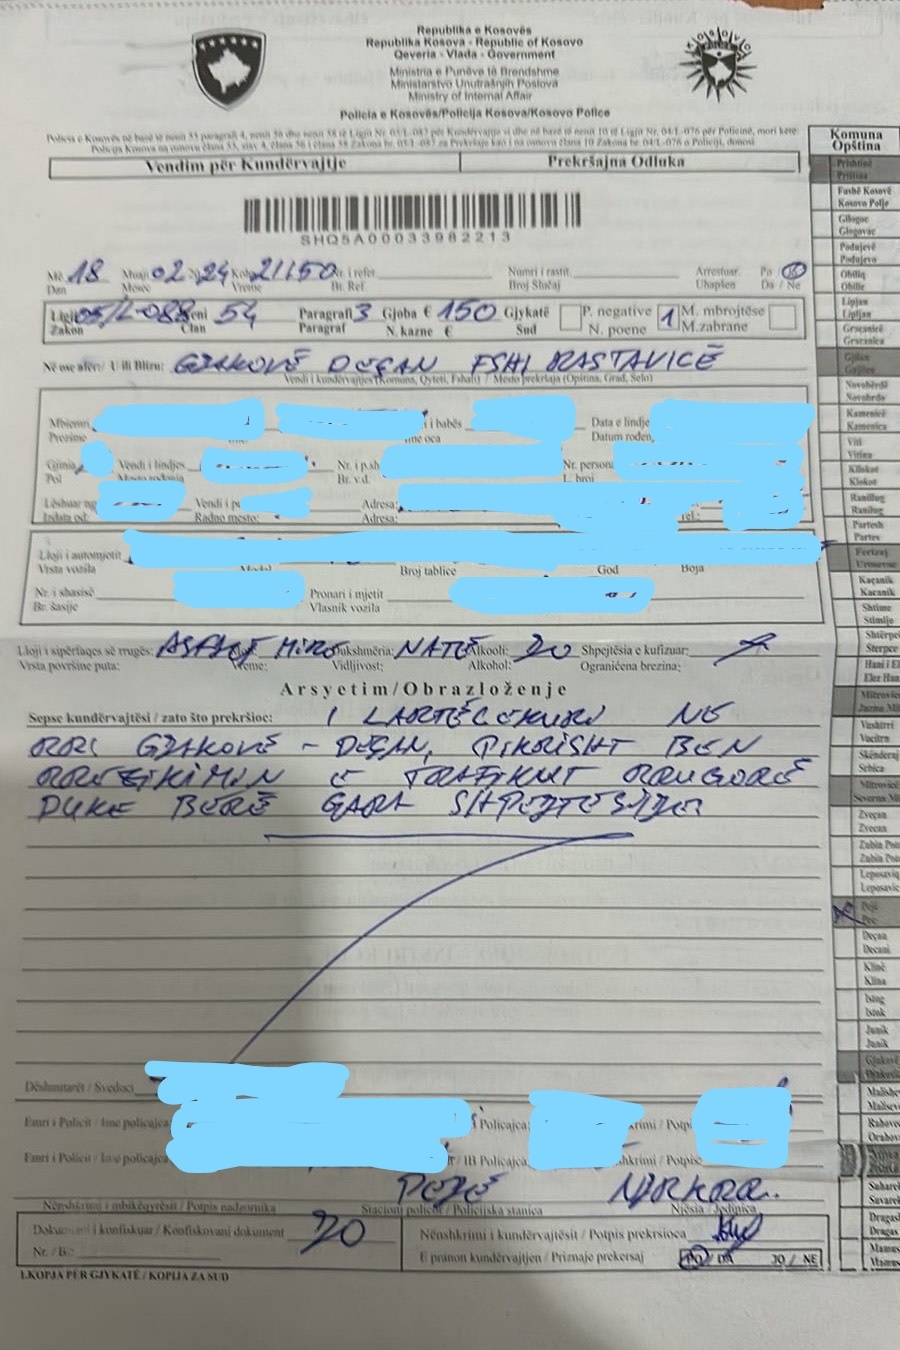 Republika e Kosovës
Republika Kosova - Republic of Kosovo
Qeveria - Vlada - Government
Ministria e Punëve të Brendshme
Ministarstvo Unutrašnjih Poslova
Ministry of Internal Affair
Policia e Kosovës/Policija Kosova/Kosovo Police
Policia e Kosovës në bazë të nenit 53 paragrafi 4, nenit 56 dhe nenit 58 të Ligjit Nr. 05/L-087 për Kundërvajtje si dhe në bazë të nenit 10 të Ligjit Nr. 04/L-076 për Policinë, mori këtë:
Policija Kosova na osnovu člana 53, stav 4, člana 56 i člana 58 Zakona br. 05/L-087 za Prekršaje kao i na osnovu člana 10 Zakona br. 04/L-076 o Policiji, donosi
Vendim për Kundërvajtje Prekršajna Odluka
SHQ5A00033982213
Më 18 Muaji 02 24 Koha 21:50 Nr. i refer. Numri i rastit. Arrestuar. Po Jo
Dan Mesec Vreme Br. Ref. Broj Slučaj Uhapšen Da / Ne
Ligji 05/L-088 Neni 54 Paragrafi 3 Gjoba € 150 Gjykatë P. negative 1 M. mbrojtëse
Zakon Član Paragraf N. kazne € Sud N. poene M.zabrane
Në ose afër/ U ili Blizu: GJAKOVË DEÇAN FSHI RASTAVICË
Vendi i kundërvajtjes (Komuna, Qyteti, Fshati) / Mesto prekršaja (Opština, Grad, Selo)
Mbiemri i babës Data e lindje
Prezime ime oca Datum rođen
Gjinia Vendi i lindjes Nr. i p.sh Nr. personi
Pol Mesto rođenja Br. v.d. L. broj
Lëshuar ng Vendi i p Adresa:
Izdata od: Radno mesto: Adresa: Tel.:
Lloji i automjetit
Vrsta vozila Model Broj tablice God Boja
Nr. i shasisë Pronari i mjetit
Br. šasije Vlasnik vozila
Lloji i sipërfaqes së rrugës: ASFALT MIRË Dukshmëria: NATË Alkooli: Shpejtësia e kufizuar:
Vrsta površine puta: Vreme: Vidljivost: Alkohol: Ograničena brezina:
Arsyetim/Obrazloženje
Sepse kundërvajtësi / zato što prekršioc: I LARTËCEKURI NË
RR. GJAKOVË - DEÇAN, PIKRISHT BËN
RREZIKIMIN E TRAFIKUT RRUGORË
DUKE BËRË GARA SHPEJTËSIJE
Dëshmitarët / Svedoci
Emri i Policit / Ime policajca Policajca: Potpis
Emri i Policit / Ime policajca / IB Policajca Potpis
PEJË
Nënshkrimi i mbikëqyrësit / Potpis nadzornika Stacioni policor / Policijska stanica Njësia / Jedinica
Dokumenti i konfiskuar / Konfiskovani dokument Nënshkrimi i kundërvajtësit / Potpis prekršioca
Nr. / B.: E pranon kundërvajtjen / Priznaje prekersaj PO / DA JO / NE
I.KOPJA PËR GJYKATË / KOPIJA ZA SUD
Komuna
Opština
Prishtinë
Priština
Fushë Kosovë
Kosovo Polje
Gllogoc
Glogovac
Podujevë
Podujevo
Obiliq
Obilić
Lipjan
Lipljan
Graçanicë
Gracanica
Gjilan
Gnjilane
Novobërdë
Novobrdo
Kamenicë
Kamenica
Viti
Vitina
Kllokot
Klokot
Ranillug
Ranilug
Partesh
Parteš
Ferizaj
Uroševac
Kaçanik
Kacanik
Shtime
Štimlje
Shtërpc
Šterpce
Hani i El
Elez Han
Mitrovic
Vushtrri
Vucitrn
Skënderaj
Srbica
Zveçan
Zvecan
Zubin Pot
Zubin Pot
Leposaviq
Leposavic
Pejë
Pec
Deçan
Decani
Klinë
Klina
Istog
Istok
Junik
Junik
Gjakovë
Malishe
Mališevo
Rahovec
Orahovac
Suharek
Suvarek
Dragash
Dragaš
Mamush
Mamuša